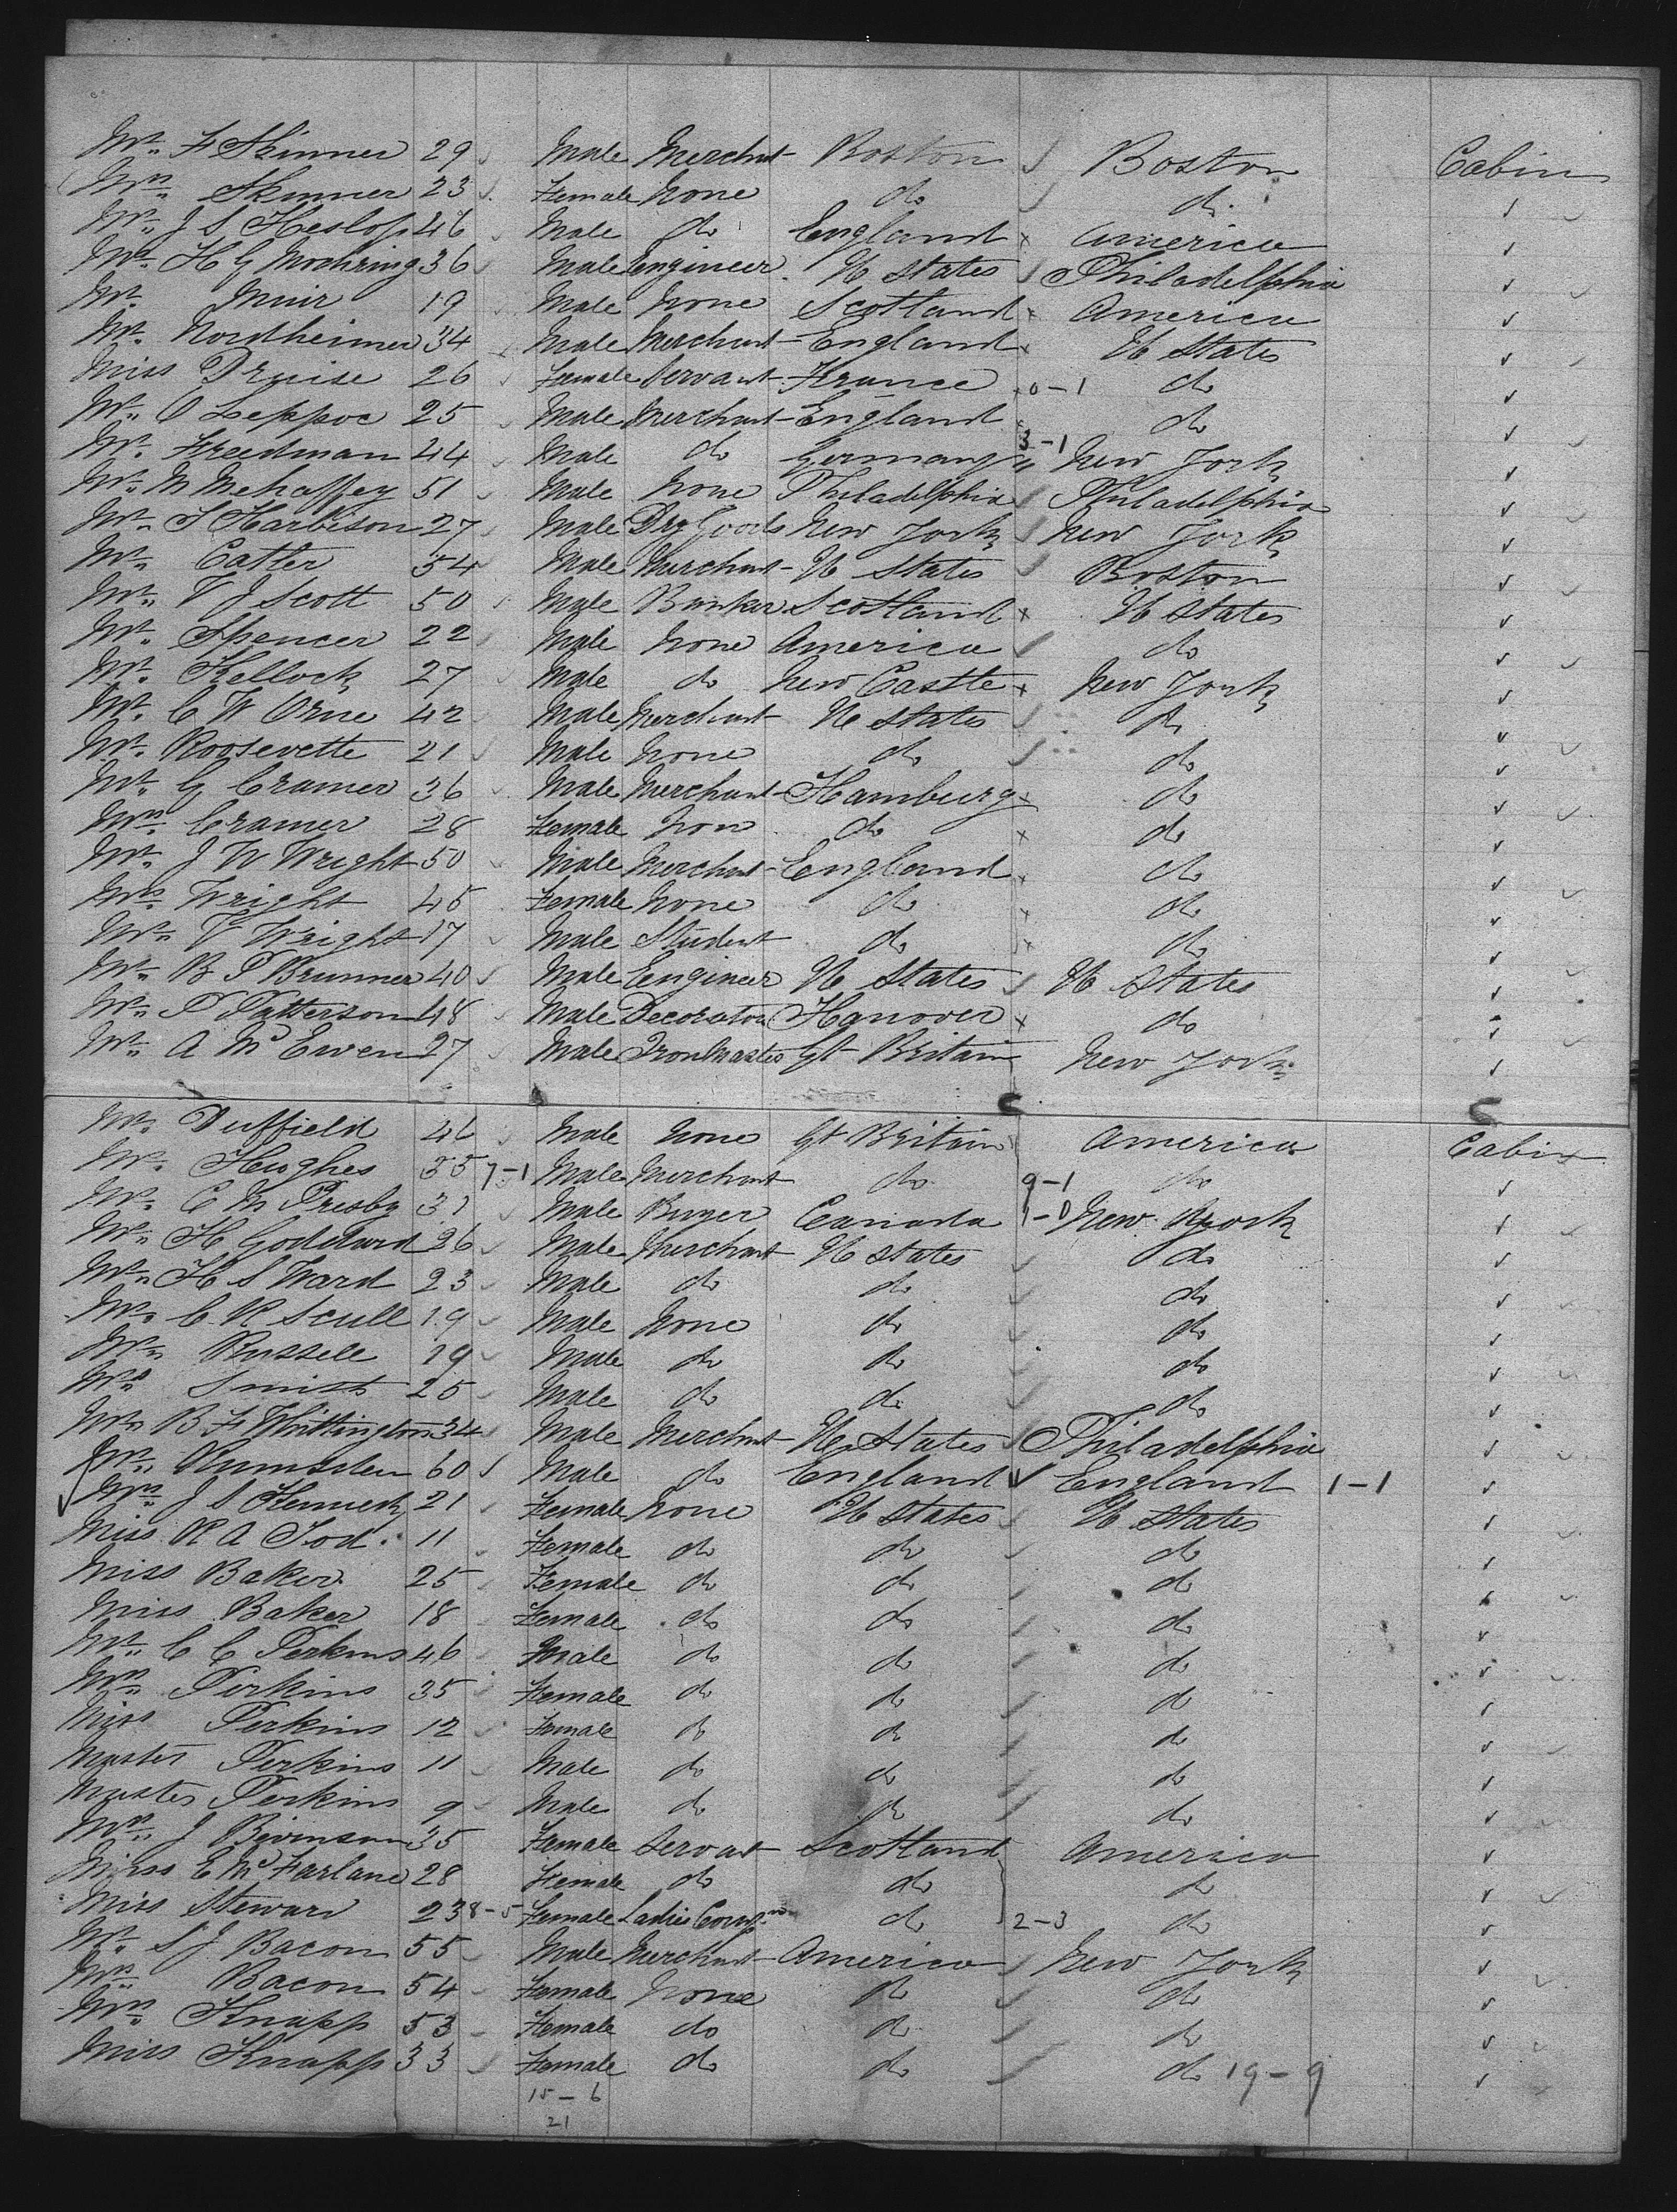 Mr. F Skinner 29 Male Merchnt Boston Boston Cabin
Mrs. Skinner 23 Female None do do
Mr. J S Heslop 46 Male do England America
Mr. H G Moehring 36 Male Engineer U States Philadelphia
Mr. Muir 19 Male None Scotland America
Mr. Nordheimer 34 Male Merchant England U States
Miss Pruise 26 Female Servant France 0-1 do
Mr. O Leppoc 25 Male Merchant England do
Mr. Freedman 44 Male do Germany 3-1 New York
Mr. M Mehaffey 51 Male None Philadelphia Philadelphia
Mr. S Harbison 27 Male Dry Goods New York New York
Mr. Catter 54 Male Merchant U States Boston
Mr. V J Scott 50 Male Banker Scotland U States
Mr. Spencer 22 Male None America do
Mr. Kellock 27 Male do New Castle New York
Mr. C W Orne 42 Male Merchant U States do
Mr. Roosevette 21 Male None do do
Mr. G Cramer 36 Male Merchant Hamburg do
Mrs. Cramer 28 Female Non do do
Mr. J W Wright 50 Male Merchant England do
Mrs. Wright 45 Female None do do
Mr. V Wright 17 Male Student do do
Mr. B P Brunner 40 Male Engineer U States U States
Mr. P Patterson 48 Male Decorator Hanover do
Mr. A McEwen 27 Male Iron Master Gt Britain New York
Mr. Duffield 46 Male None Gt Britain America Cabin
Mr. Hughes 35 7-1 Male Merchant do 9-1 do
Mr. C M Presby 31 Male Buyer Canada 1-0 New York
Mr. H Goddard 26 Male Merchant U States do
Mr. H S Ward 23 Male do do do
Mr. C R Scull 19 Male None do do
Mr. Russell 19 Male do do do
Mr. Smith 25 Male do do do
Mr. B F Whittington 34 Male Merchnt U States Philadelphia
Mr. Rumsden 60 Male do England England 1-1
Mrs. J S Kennedy 21 Female None U States U States
Miss R A Tod 11 Female do do do
Miss Baker 25 Female do do do
Miss Baker 18 Female do do do
Mr. C C Perkins 46 Male do do do
Mrs. Perkins 35 Female do do do
Miss Perkins 12 Female do do do
Master Perkins 11 Male do do do
Master Perkins 9 Male do do do
Mrs. J 35 Female Servat Scotland America
Miss E McFarlane 28 Female do do do
Miss Steward 23 8-5 Female Ladies Comp do 2-3 do
Mr. S J Bacon 55 Male Merchant America New York
Mrs. Bacon 54 Female None do do
Mrs. Knapp 53 Female do do do
Miss Knapp 33 Female do do do 19-9
15-6
21